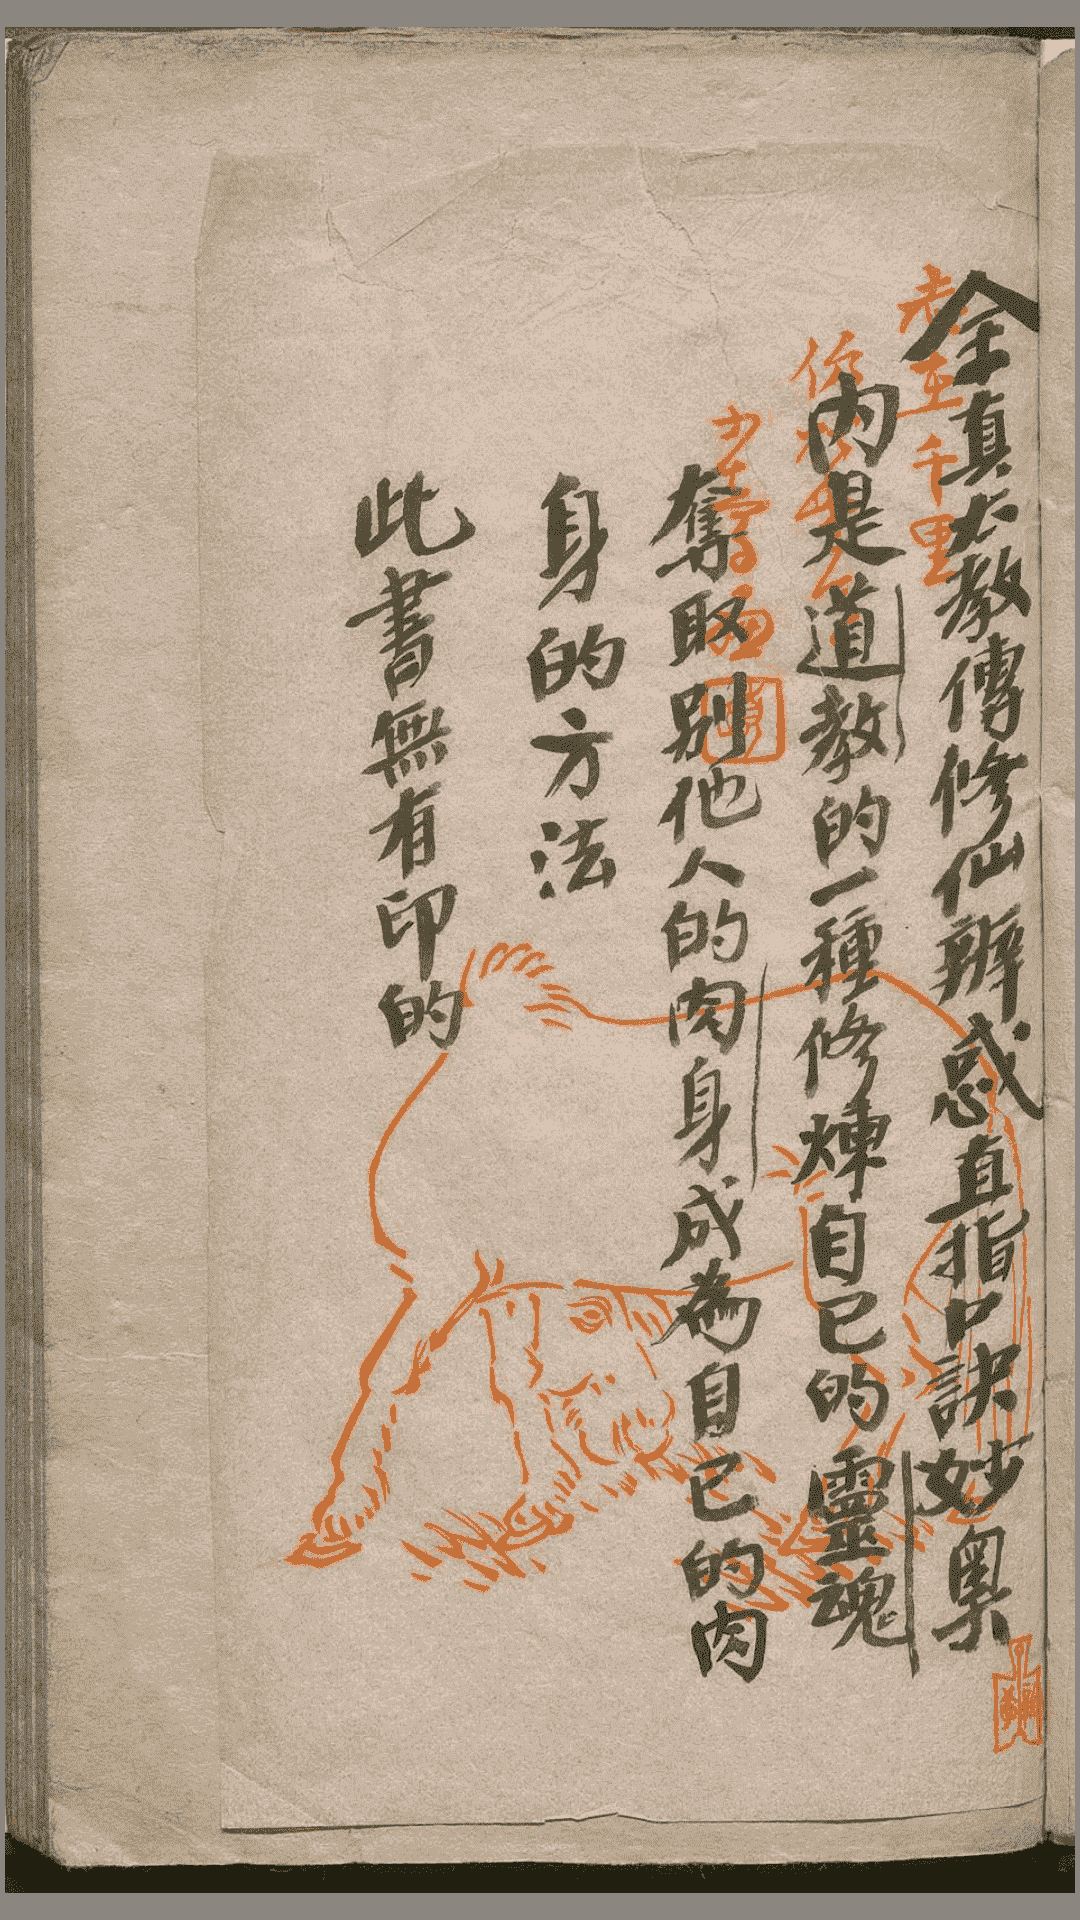 志在千里
全真大教傳修仙辨惑直指口訣妙奧
內是道教的一種修煉自己的靈魂
奪取別他人的肉身成為自己的肉
身的方法
此書無有印的